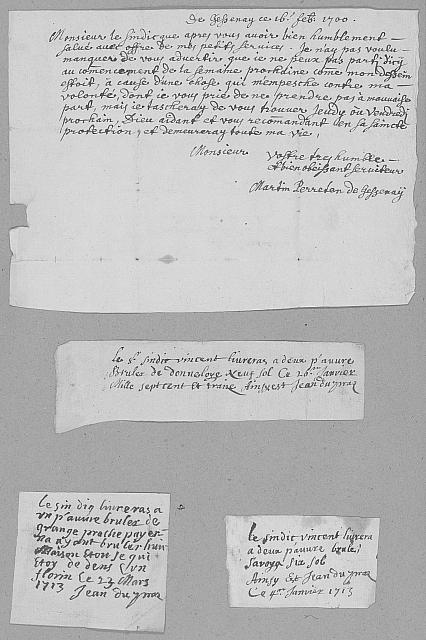 De Gessenay ce 16.e feb. 1700.
Monsieur le sindicque apres vous avoir bien humblement
salué avec offre de mes petits services. Je n'ay pas voulu
manquer de vous advertir que ie ne peux pas partir d'icy
au comencement de la semaine prochaine come mon dessein
estoit, a cause d'une chose qui m'empesche contre ma
volonté, dont ie vous prie de ne prendre pas a mauvaise
part, mais ie tascheray de vous trouver Jeudy ou Vendredi
prochain, Dieu aidant et vous recomandant en sa saincte
protection, et demeureray toute ma vie,
Monsieur
Vostre tres humble
& bien obeissant serviteur
Martin Perreten de Gessenaÿ
le Sr sindic vincent livreras a deux pauvre
Brules de donneloye neuf sol Ce 26 Janvier
Mille sept cent et traize Ainsy est Jean
le sindiq livreras a
un pauvre bruler de
grange proche payer
na ayant bruler hun
Maison et qui
de dens Cun
florin Ce 23 Mars
1713 Jean
le sindic vincent livrera
a deux pauvre brules
Savoye six sol
Ainsy Est Jean
Ce 4 Janvier 1713